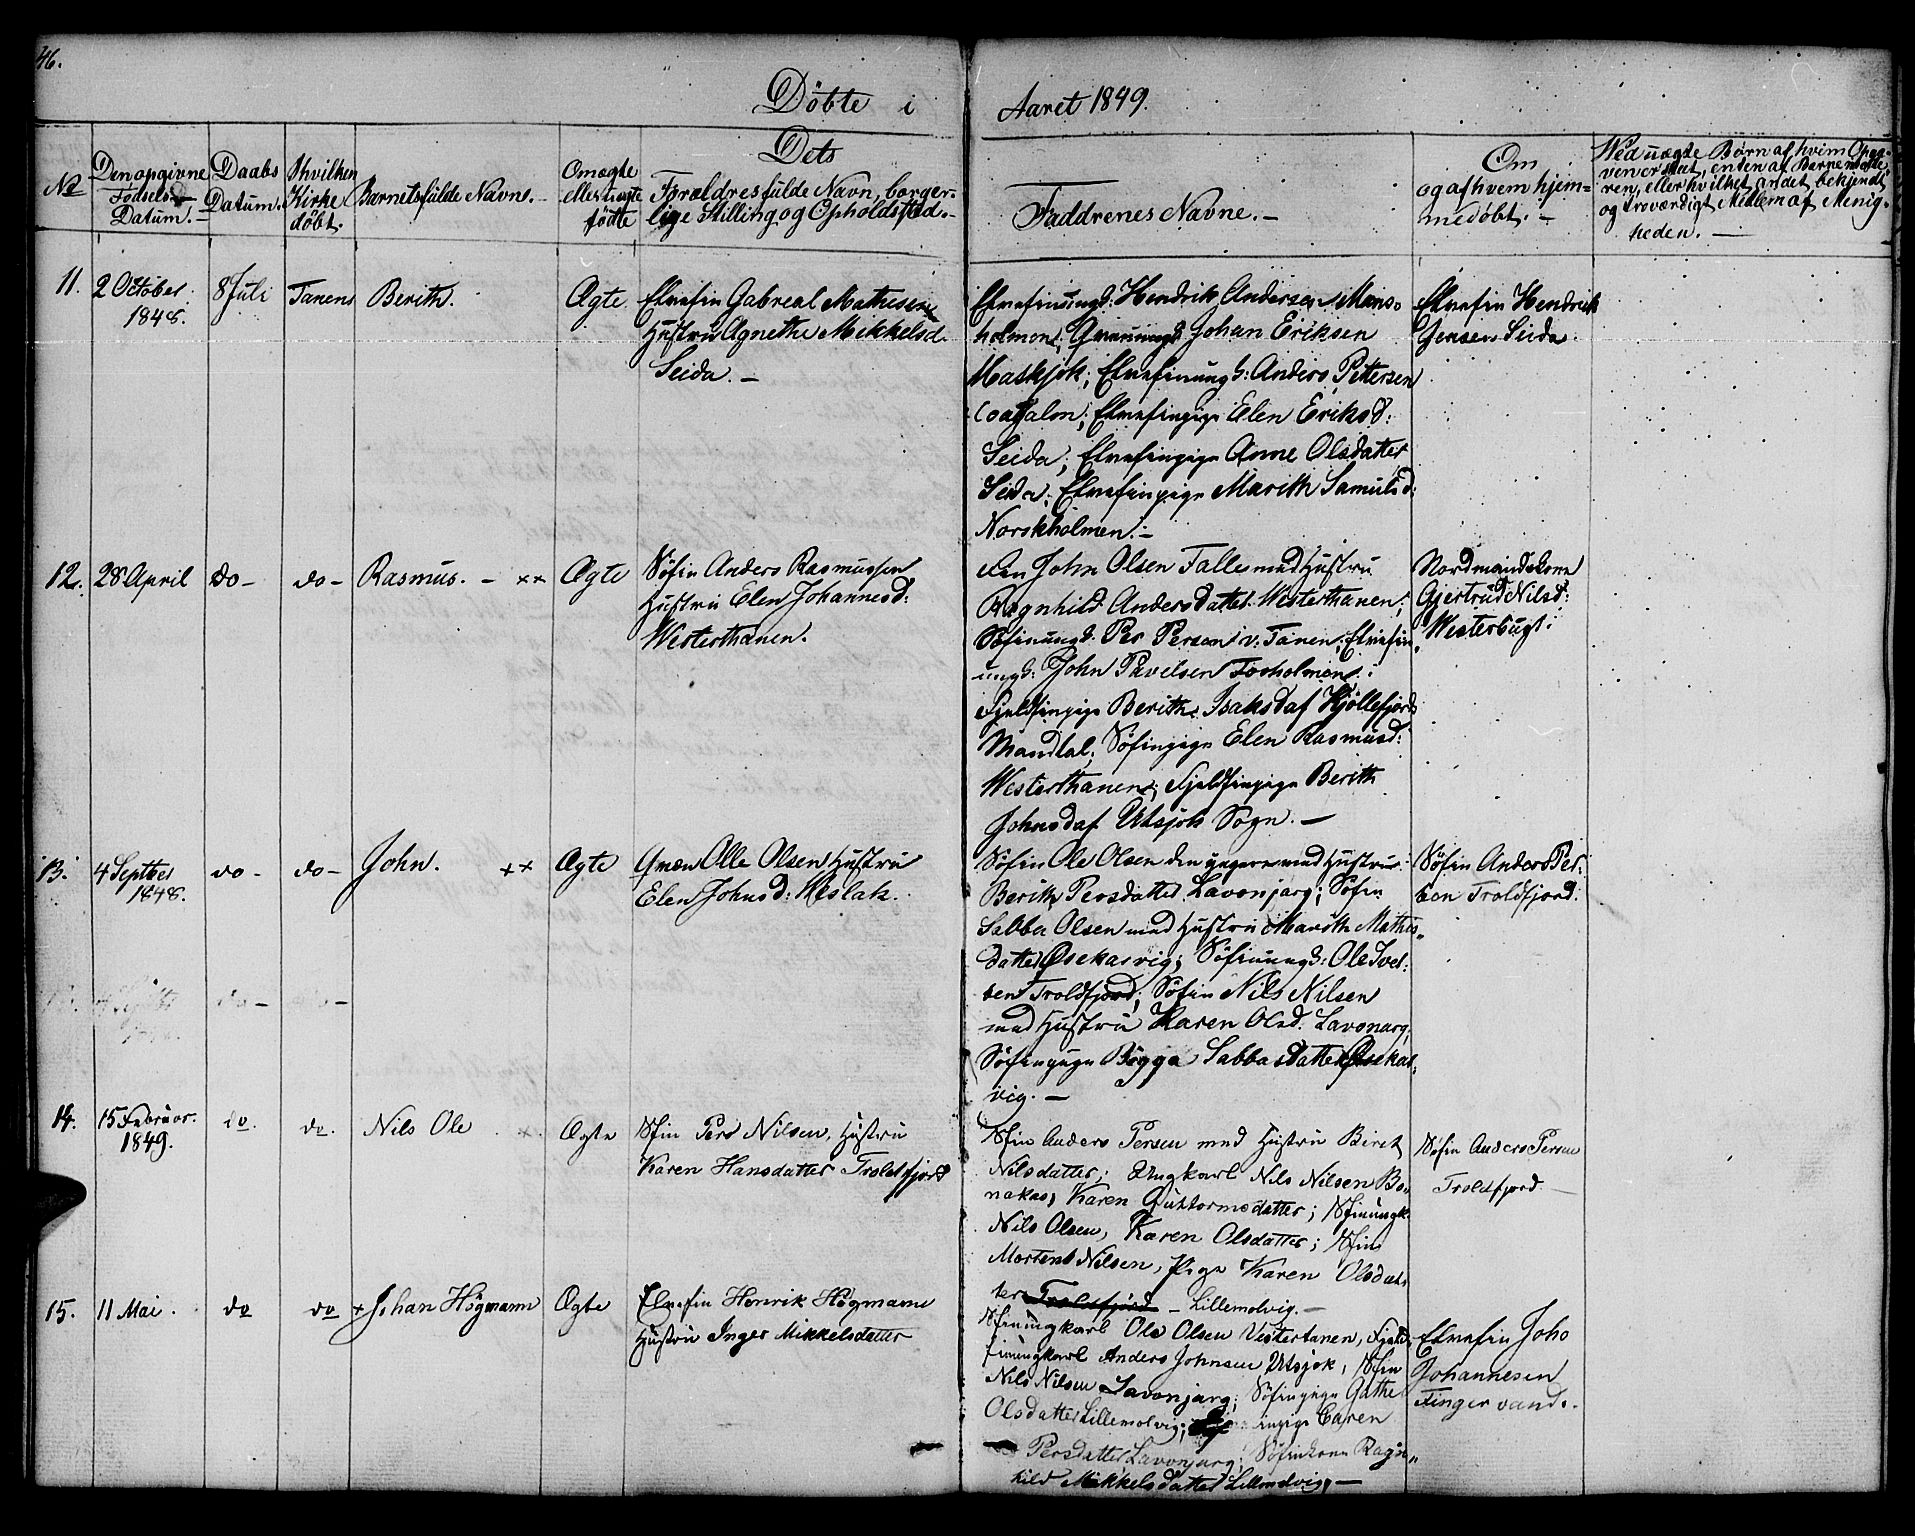 46.
Döbte i Aaret 1849.
Dets
No
Den opgivne Födsels Datum.-
Daabs Datum.
I hvilken Kirke döbt.
Barnets fulde Navn.-
Om ægte eller uægte födte
Forældres fulde Navn, borger-
lige Stilling og Opholdssted.-
Faddrenes Navne.-
Om
og af hvem hjem=
medöbt.-
Ved uægte Børn af hvem Opga-
ven er skeet, enten af Barnemode-
ren, eller hvilket andet bekjendt
og troværdigt Medlem af Menig-
heden.-
11.
2 October
1848.
8 Juli
Tanens
Berith.
Ægte
Elvefin Gabreal Mathesen
Hustru Agnethe Mikkelsd.
Seida.-
Elvefinungd: Hendrik Andersen Mans-
holmen; Johan Eriksen
Maskjok; Elvefinungd: Anders Pettersen
Elvefinpige Elen Eriksd:
Seida; Elvefinpige Anne Olsdatter
Seida; Elvefinpige Marith Samuelsd:
Norskholmen.-
Elvefin Hendrik
Jensen Seida.
12.
28 April
do-
do-
Rasmus. - ××
Ægte
Söfin Anders Rasmussen
Hustru Elen Johannesd:
Westerthanen.
John Olsen Falle med Hustru
Ragnhild Andersdatter Westerthanen;
Söfinungd: Per Persen v. Tanen; Elvefin-
ungd: John Pavelsen Forholmen;
Fjeldfinpige Berith Isaksd af Kjöllefjord
Mandtal; Söfinpige Elen Rasmusd:
Westerthanen; Fjeldfinpige Berith
Johnsd af Utsjok Sogn.-
Nordmandskone
Gjertrud Nilsd:
Westerbugt.
13.
4 Septber
1848.
do-
do-
John. ××
Ægte
Qvæn Olle Olsen Hustru
Elen Johnsd:
Söfin Ole Olsen den yngere med Hustru
Berith Persdatter Lavonjarg; Söfin
Sabba Olsen med Hustru Marith Mathis-
datter Øsekarvig; Söfinungd: Ole Ivel:
sen Troldfjord; Söfin Nils Nilsen
med Hustru Karen Olsd. Lavonarg;
Söfinpige Bigga Sabbasdatter Øsekar-
vig.-
Söfin Anders Per:
sen Troldfjord.
4 Septbr
do-
do-
14.
15 Februar.
1849.
do.
do.
Nils Ole ×
Ægte
Sfin Per Nilsen, Hustru
Karen Hansdatter Troldfjord
Sfin Anders Persen med Hustru Biret
Nilsdatter; Ungkarl Nils Nilsen Bo-
nakas, Karen Guttormsdatter; Sfinungk.
Nils Olsen, Karen Olsdatter; Sfin
Morten Nilsen, Pige Karen Olsdat-
ter Troldfjord - Lillemolvig.-
Söfin Anders Persen
Troldfjord -
15.
11 Mai.
do
do
× Johan Högmann
Ægte
Elvefin Henrik Högmann
Hustru Inger Mikkelsdatter
Sfinungkarl Ole Olsen Vestertanen, Fjeld-
finungkarl Anders Johnsen Utsjok, Sfin
Nils Nilsen Lavonjarg; Söfinpige Gathe
Olsdatter Lillemolvig; finpige Caren
Persdatter Lavonjarg; Söfinkone Ragn-
hild Mikkelsdatter Lillemolvig.-
Elvefin Joho
Johannesen
Fingervand.